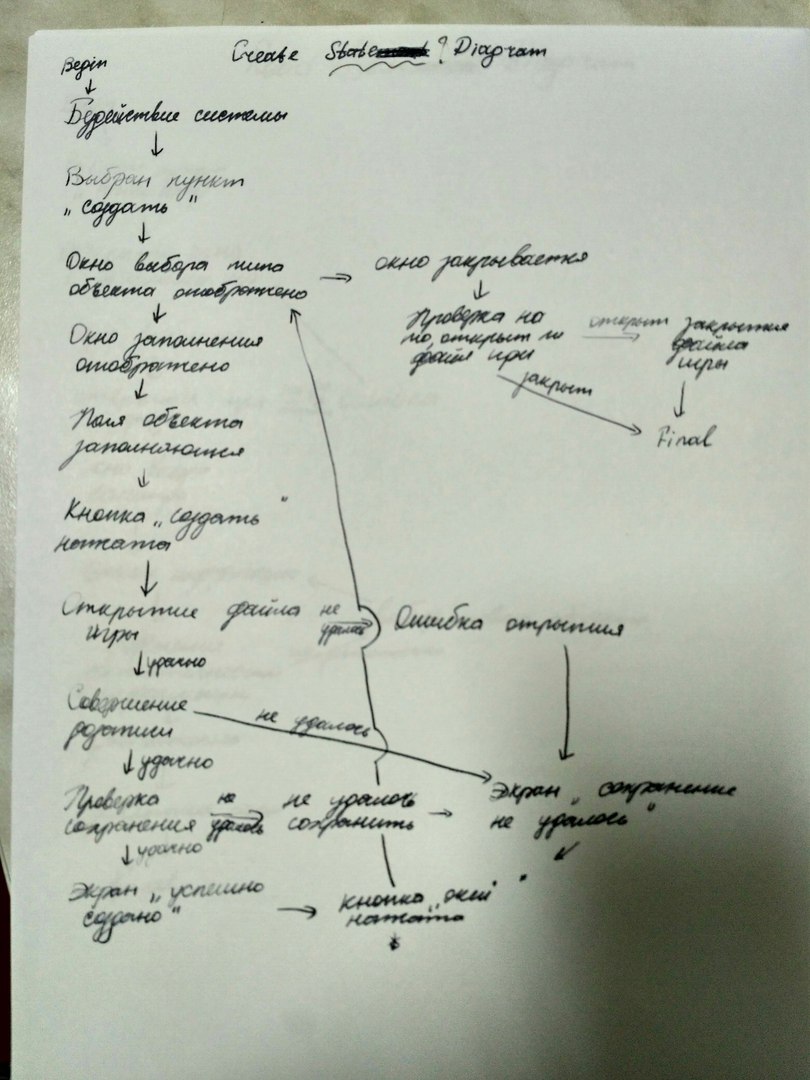 Create State ? Diagram
Begin
Бедействие системы
Выбран пункт
„создать"
Окно выбора типа
объекта отображено
окно закрывается
Проверка на
то, открыт ли
файл игры
открыт
закрытие
файла
игры
закрыт
Final
Окно заполнения
отображено
Поля объекта
заполняются
Кнопка „создать"
нажата
Открытие файла
игры
не
удалось
Ошибка открытия
удачно
Совершение
не удалось
удачно
Проверка
сохранения
не
удалось
не удалось
сохранить
Экран „сохранение
не удалось"
удачно
Экран „успешно
создано"
Кнопка „окей"
нажата